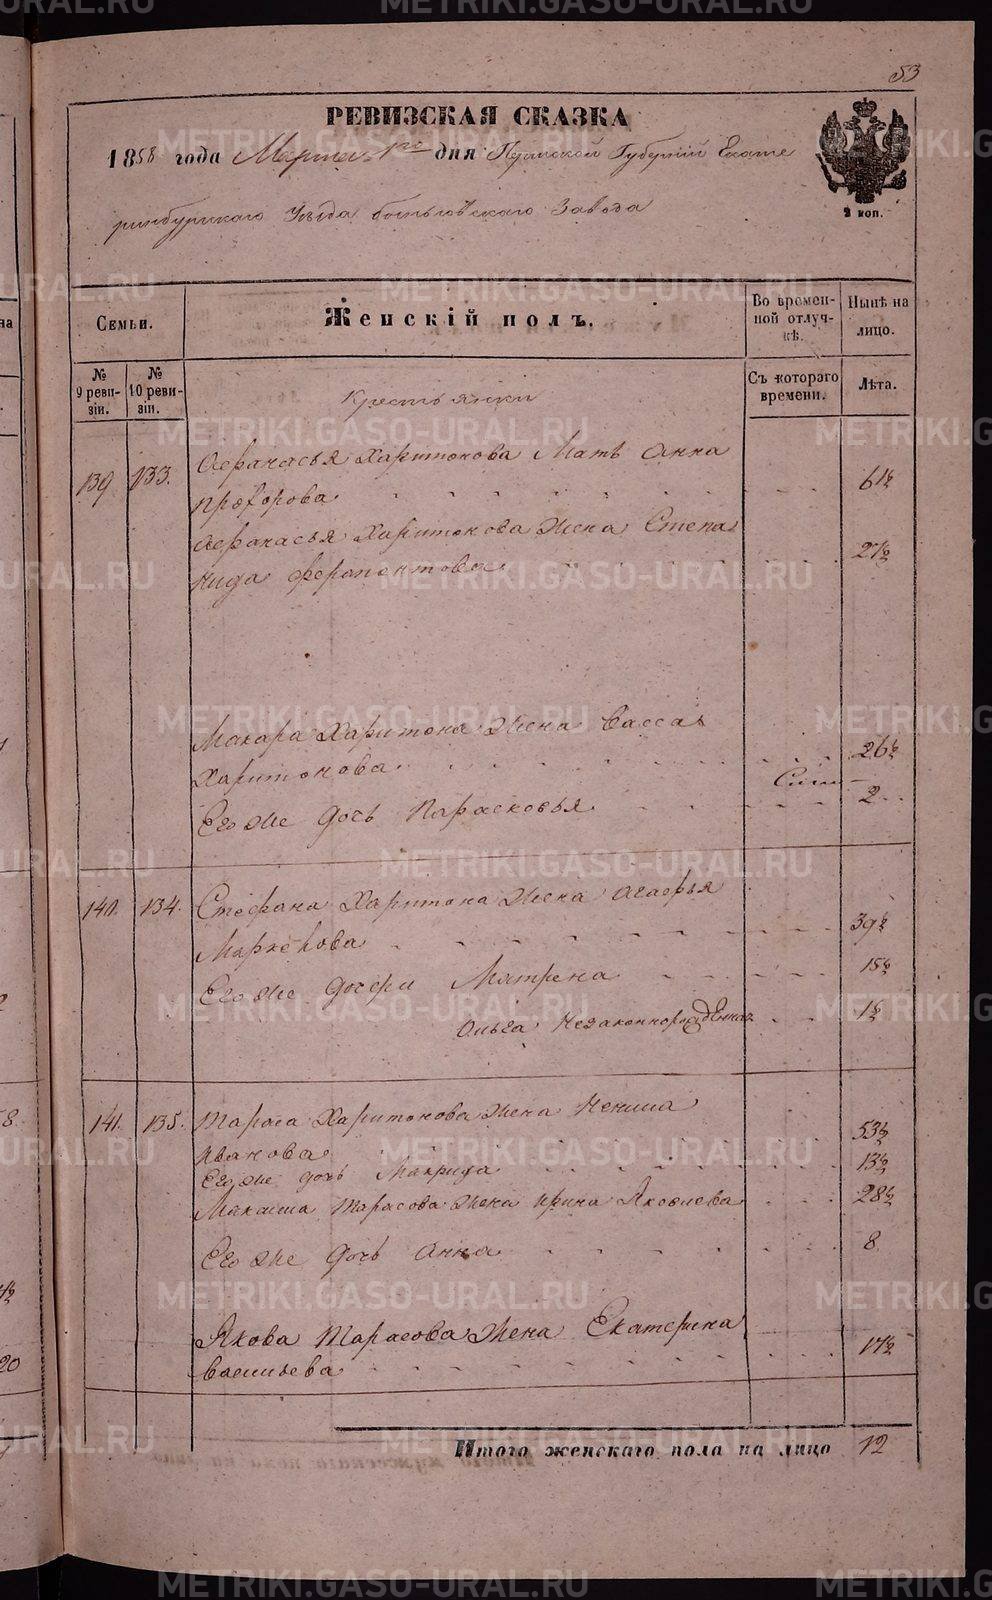 53
РЕВИЗСКАЯ СКАЗКА
1858 года Марта 1го дня Пермской Губернiи Екате
ринбургскаго Уезда Завода
2 коп.
Семьи.
Женскiй полъ.
Во времен-
ной отлуч-
кѣ.
Нынѣ на
лицо.
№ 9 реви-
зiи.
№ 10 реви-
зiи.
Съ котораго
времени.
Лѣта.
Крестьянки
139 133. Афанасья Харитонова Мать Анна
Прохорова 61½
Афанасья Харитонова Жена Степа
нида Ферапонтова 27½
Макара Харитона Жена Васса
Харитонова 26½
Его же дочь Парасковья 2
140. 134. Стефана Харитона Жена Агафья
Маркелова 39½
Его же дочери Матрена 15½
Ольга Незаконнорожденная 1½
141. 135. Тараса Харитонова Жена Ненила
Иванова 53½
Его же дочь Макрида 13½
Тарасова Жена Ирина Яковлева 28½
Его же дочь Анна 8
Якова Тарасова Жена Екатерина
Васильева 17½
Итого женскаго пола на лицо 12
METRIKI.GASO-URAL.RU